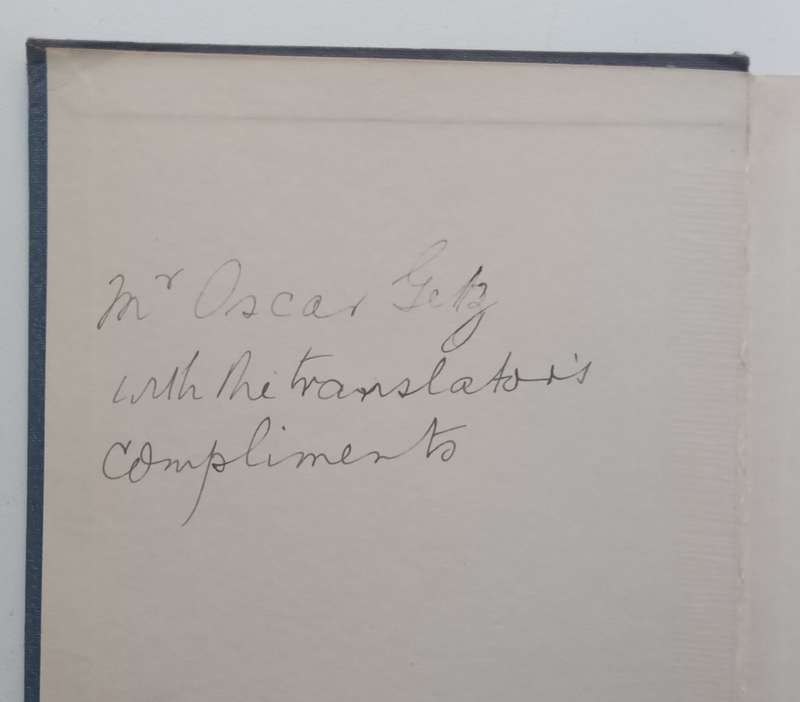 Mr Oscar Getz
with the translator's
compliments